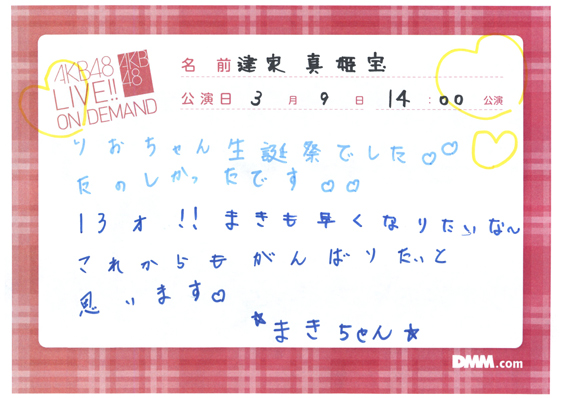 AKB48
LIVE!!
ON DEMAND
AKB
48
名前 達家 真姫宝
公演日 3月9日 14:00 公演
りおちゃん生誕祭でした♡♡
たのしかったです♡♡
13才!!まきも早くなりたいな〜
これからもがんばりたいと
思います♡
☆まきちゃん☆
DMM.com